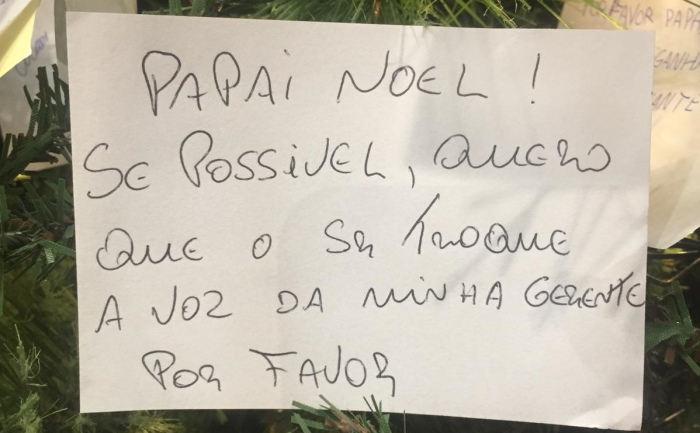 PAPAi NOEL!
SE POSSiVEL, QUERO
QUE O SR TROQUE
A VOZ DA MINHA GERENTE
POR FAVOR
FAVOR PAPA